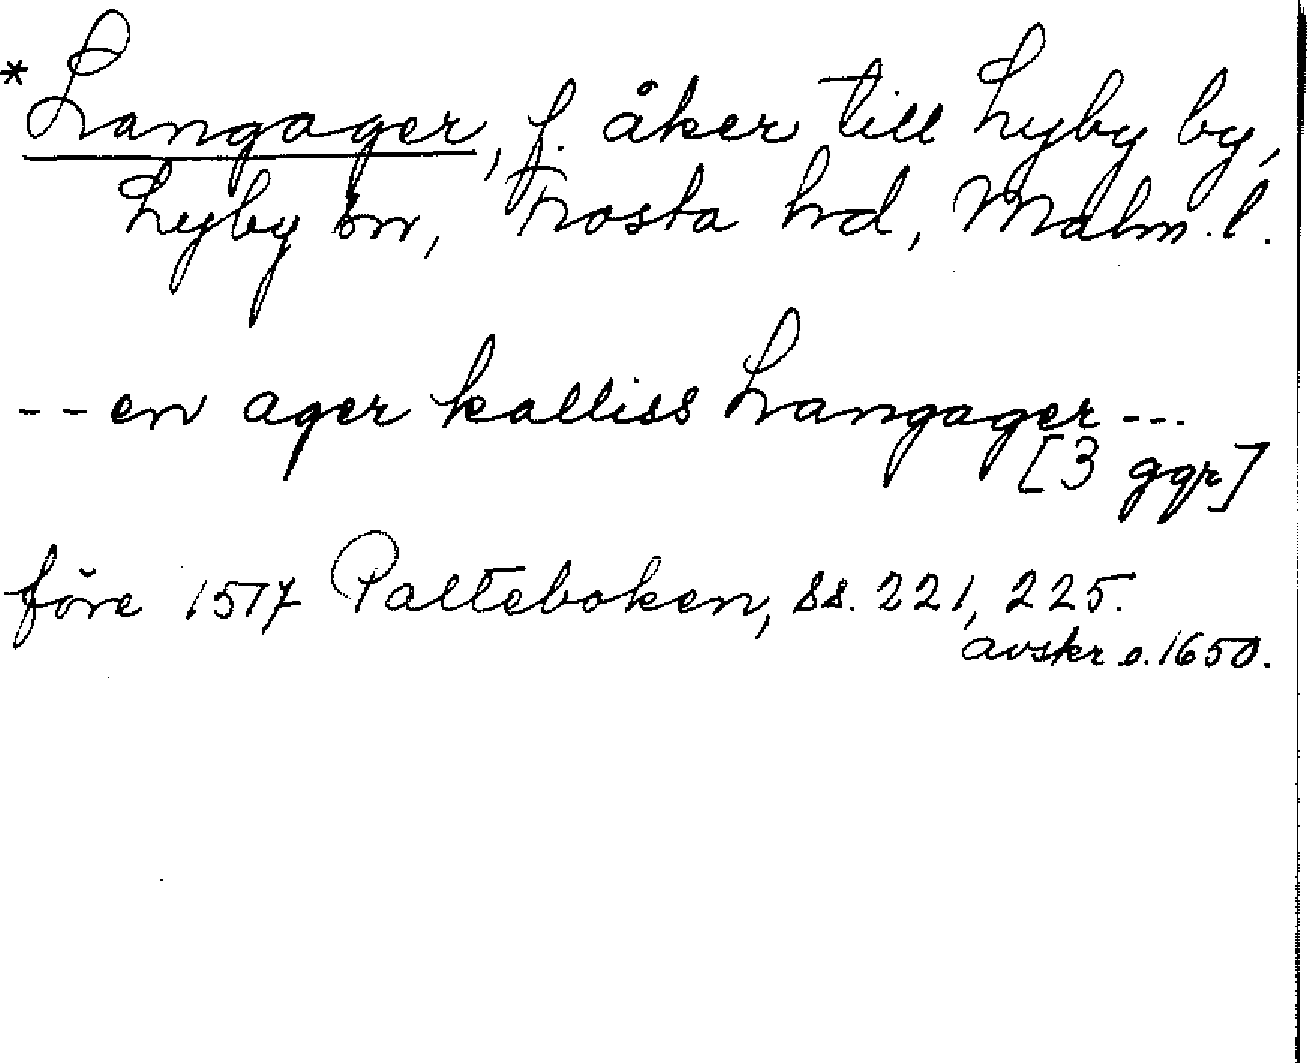 *Langager, f. åker till Lyby by,
Lyby sn, Frosta hd, Malm. l.
-- en ager kalliss Langager ---
[3 ggr]
före 1517 Palteboken, ss. 221, 225.
avskr o. 1650.